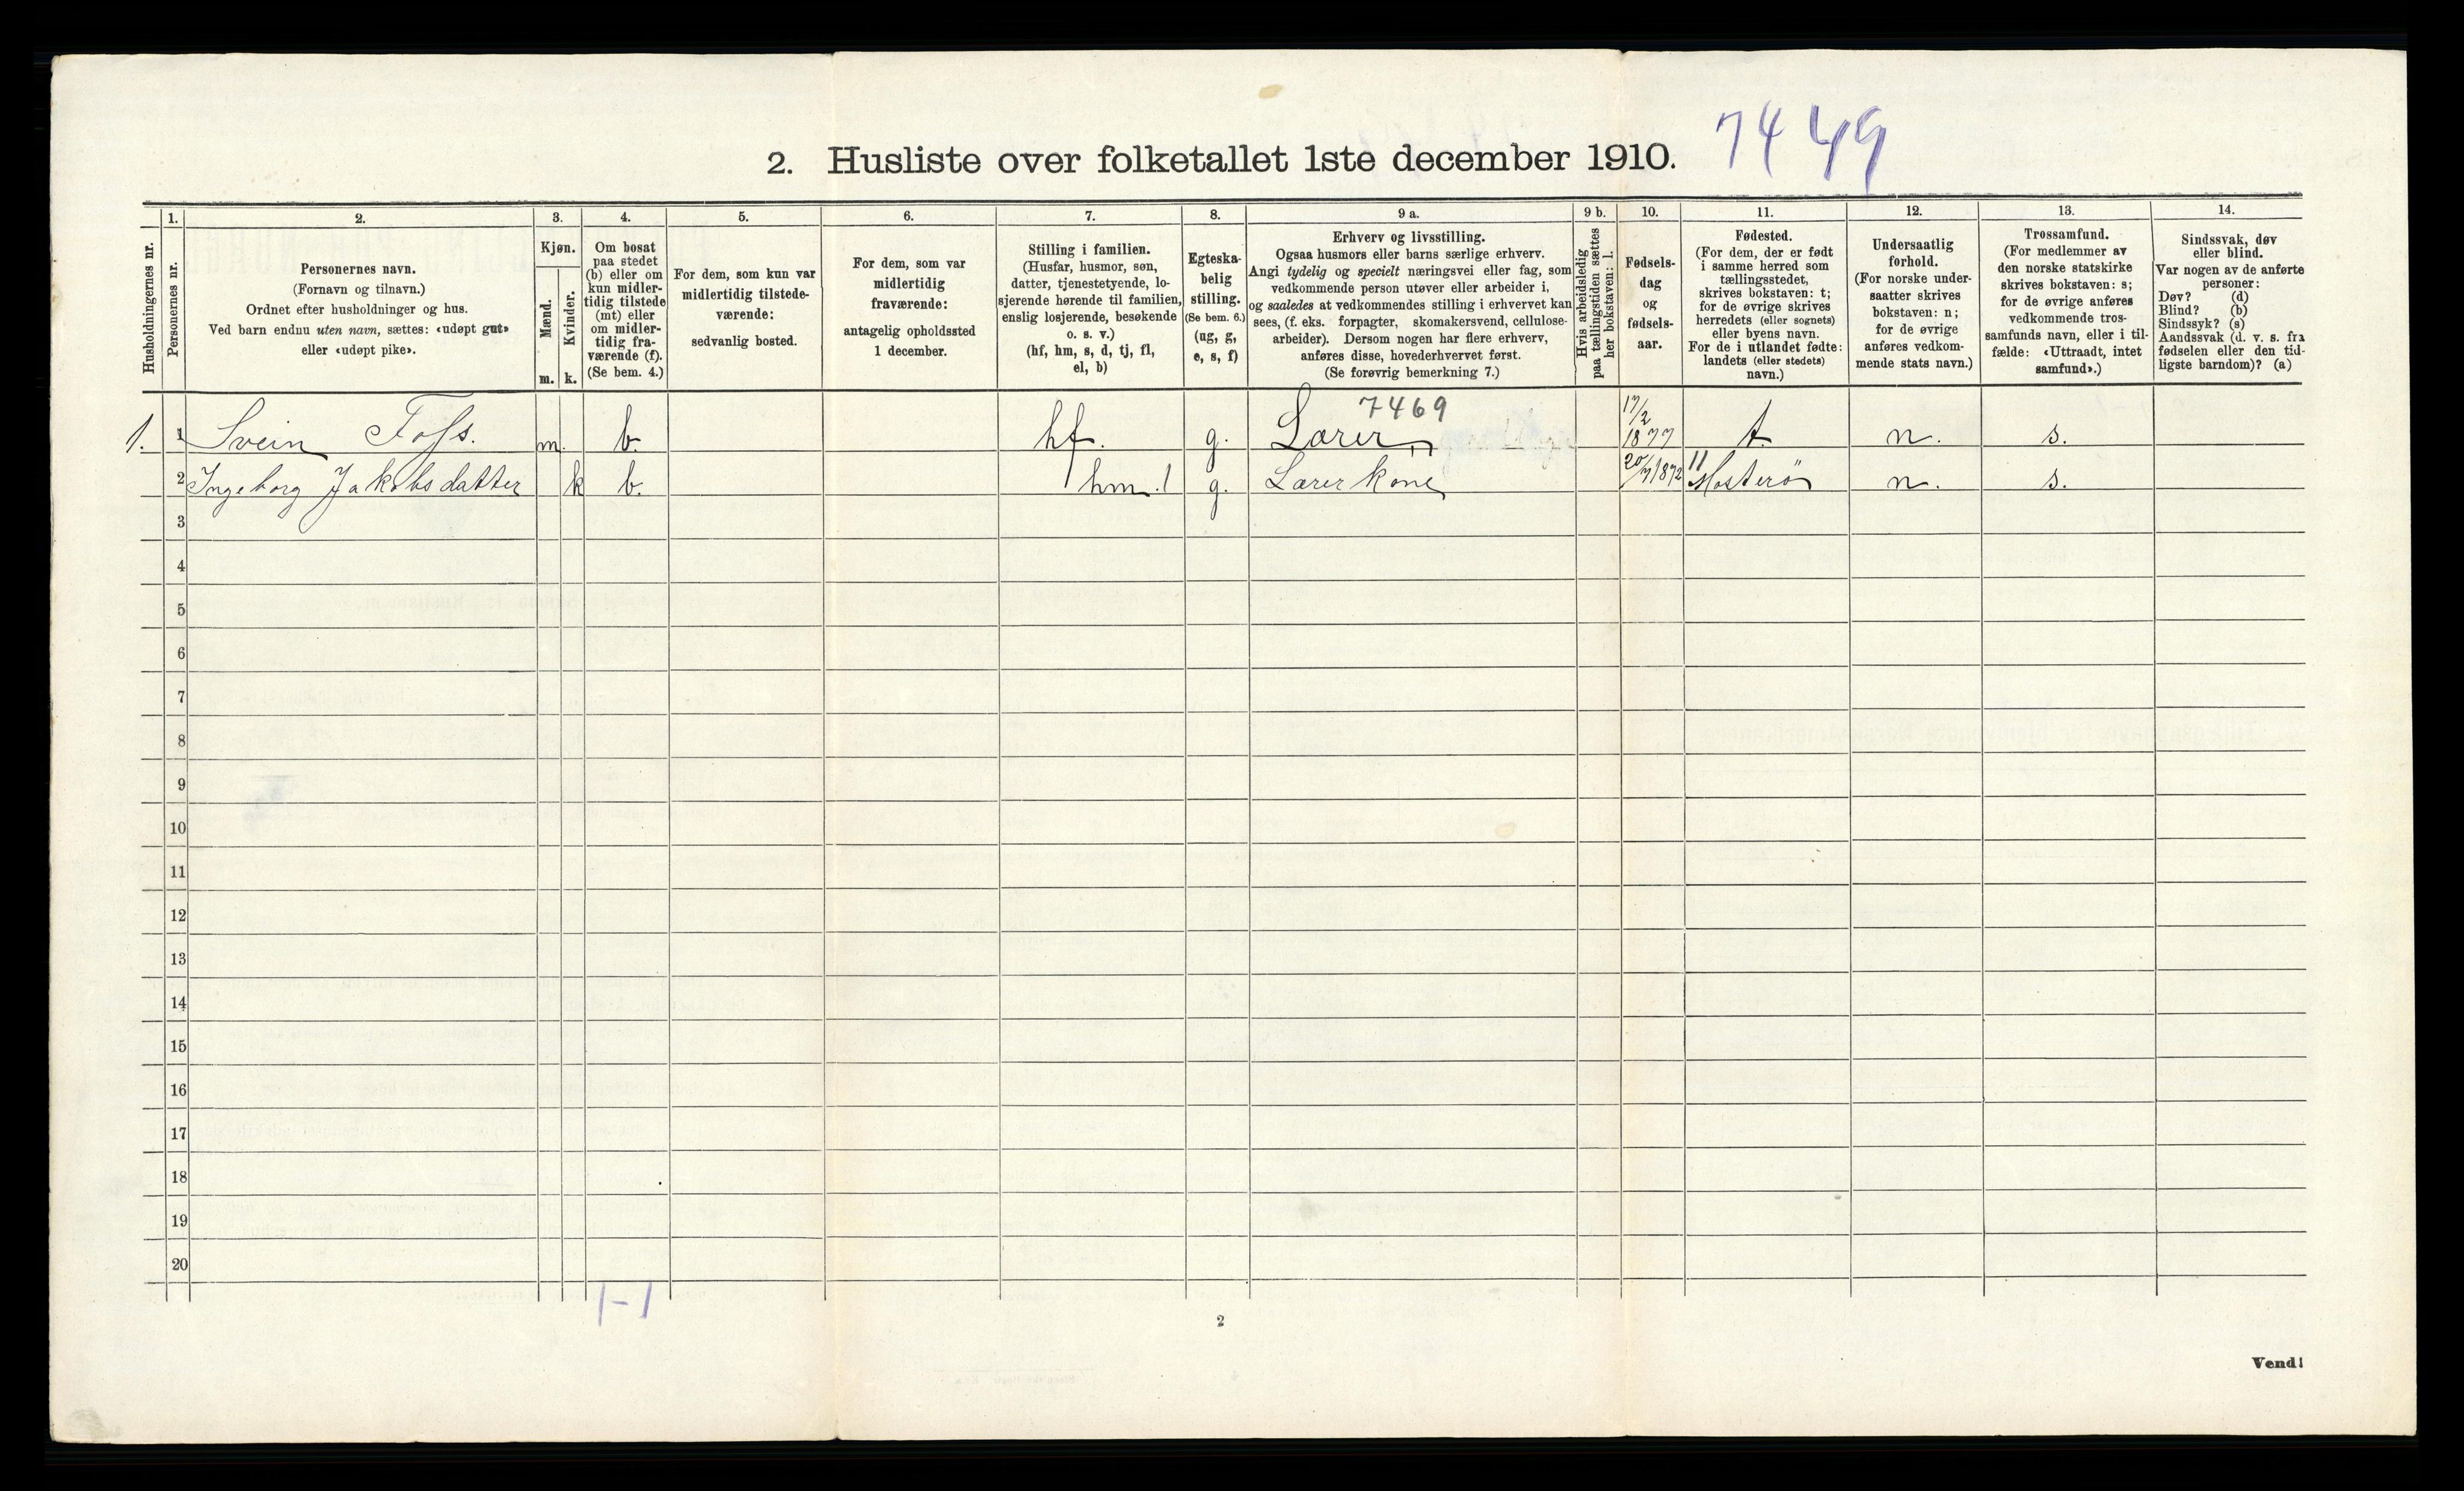 2. Husliste over folketallet 1ste december 1910. 7449
1. 2. 3. 4. 5. 6. 7. 8. 9 a. 9 b. 10. 11. 12. 13. 14.
Husholdningernes nr.
Personernes nr.
Personernes navn.
(Fornavn og tilnavn.)
Ordnet efter husholdninger og hus.
Ved barn endnu uten navn, sættes: «udøpt gut»
eller «udøpt pike».
Kjøn.
Mænd.
m.
Kvinder.
k.
Om bosat
paa stedet
(b) eller om
kun midler-
tidig tilstede
(mt) eller
om midler-
tidig fra-
værende (f).
(Se bem. 4.)
For dem, som kun var
midlertidig tilstede-
værende:
sedvanlig bosted.
For dem, som var
midlertidig
fraværende:
antagelig opholdssted
1 december.
Stilling i familien.
(Husfar, husmor, søn,
datter, tjenestetyende, lo-
sjerende hørende til familien,
enslig losjerende, besøkende
o. s. v.)
(hf, hm, s, d, tj, fl,
el, b)
Egteska-
belig
stilling.
(Se bem. 6.)
(ug, g,
e, s, f)
Erhverv og livsstilling.
Ogsaa husmors eller barns særlige erhverv.
Angi tydelig og specielt næringsvei eller fag, som
vedkommende person utøver eller arbeider i,
og saaledes at vedkommendes stilling i erhvervet kan
sees, (f. eks. forpagter, skomakersvend, cellulose-
arbeider). Dersom nogen har flere erhverv,
anføres disse, hovederhvervet først.
(Se forøvrig bemerkning 7.)
Hvis arbeidsledig
paa tællingstiden sættes
her bokstaven: l.
Fødsels-
dag
og
fødsels-
aar.
Fødested.
(For dem, der er født
i samme herred som
tællingsstedet,
skrives bokstaven: t;
for de øvrige skrives
herredets (eller sognets)
eller byens navn.
For de i utlandet fødte:
landets (eller stedets)
navn.)
Undersaatlig
forhold.
(For norske under-
saatter skrives
bokstaven: n;
for de øvrige
anføres vedkom-
mende stats navn.)
Trossamfund.
(For medlemmer av
den norske statskirke
skrives bokstaven: s;
for de øvrige anføres
vedkommende tros-
samfunds navn, eller i til-
fælde: «Uttraadt, intet
samfund».)
Sindssvak, døv
eller blind.
Var nogen av de anførte
personer:
Døv? (d)
Blind? (b)
Sindssyk? (s)
Aandssvak (d. v. s. fra
fødselen eller den tid-
ligste barndom)? (a)
7469
1. 1 Svein Foss. m. b. hf. g. Lærer 17/2 1877 t. n. s.
2 Ingeborg Jakobsdatter k b. hm. 1 g. Lærerkone 20/7 1872 11 Mosterö n. s.
3
4
5
6
7
8
9
10
11
12
13
14
15
16
17
18
19
20
1-1
2
Vend!